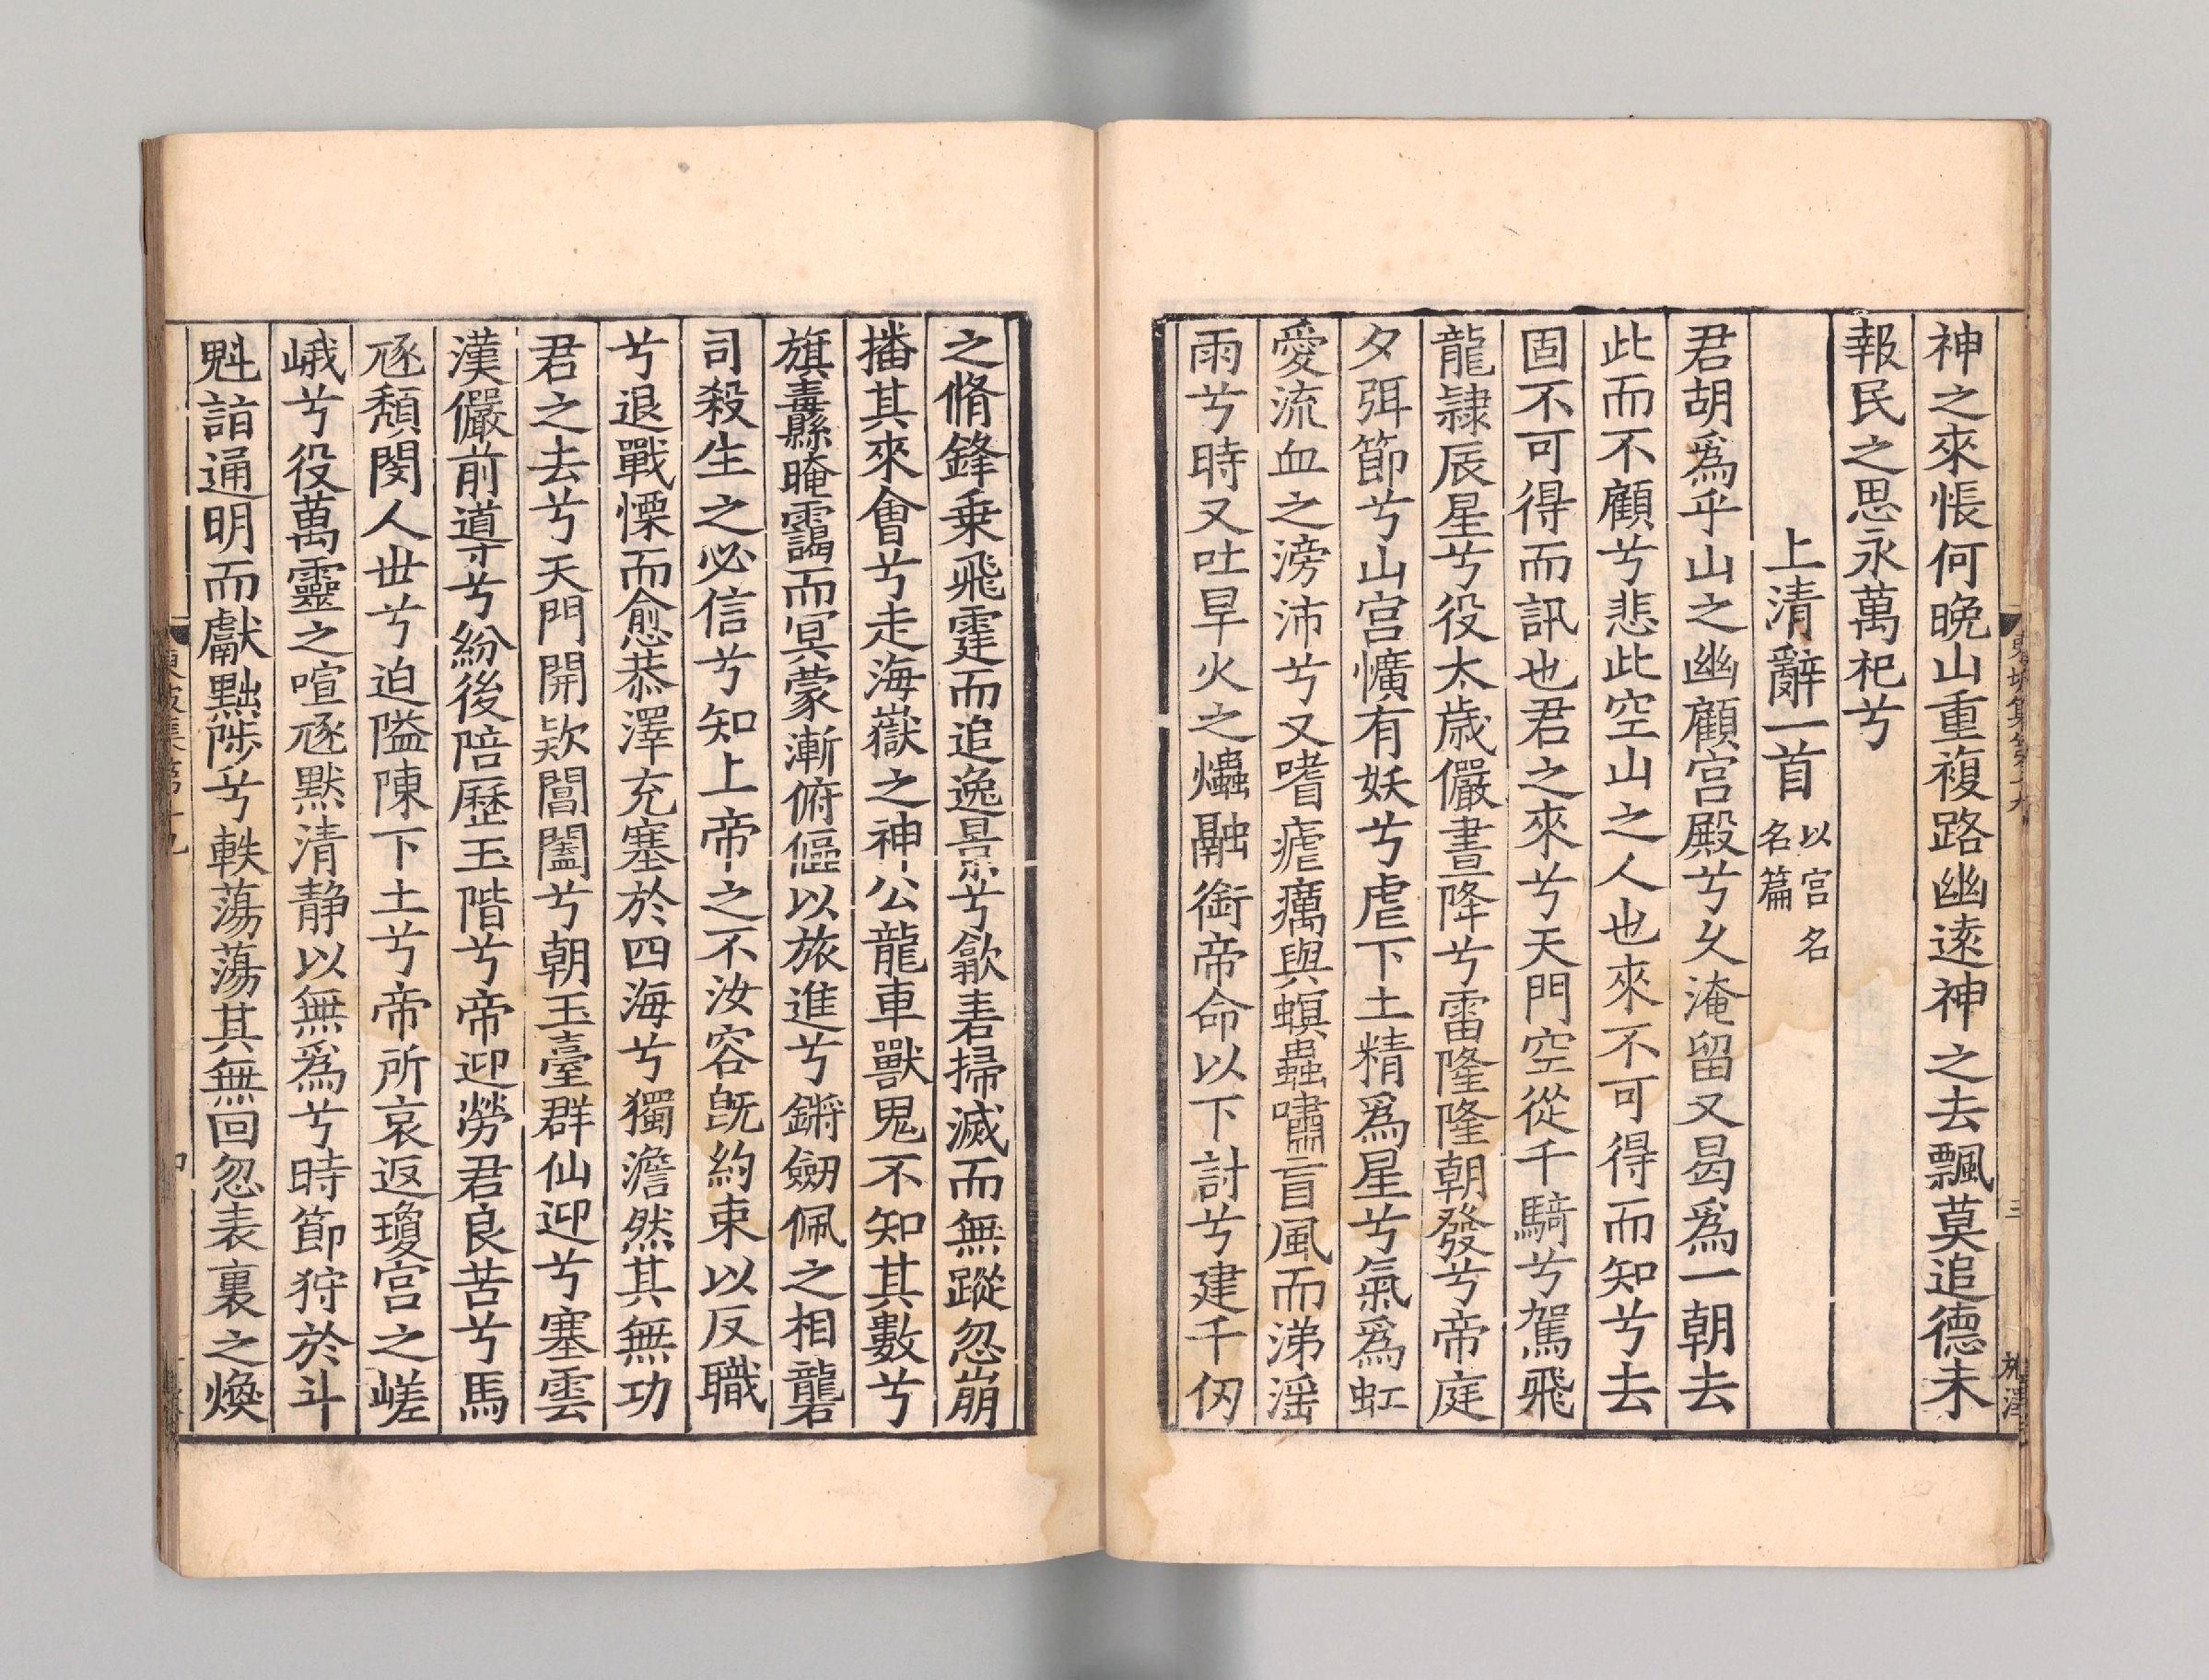 神之來悵何晚山重複路幽遠神之去飄莫追德未
報民之思永萬祀兮
上清辭一首 以宫名名篇
君胡爲乎山之幽顧宫殿兮久淹留又曷爲一朝去
此而不顧兮悲此空山之人也來不可得而知兮去
固不可得而訊也君之來兮天門空從千騎兮駕飛
龍隷辰星兮役太歳儼晝降兮雷隆隆朝發兮帝庭
夕弭節兮山宫懭有妖兮虐下土精爲星兮氣爲虹
愛流血之滂沛兮又嗜瘧癘與螟蟲嘯盲風而涕滛
雨兮時又吐旱火之爞融銜帝命以下討兮建千仞
之脩鋒乗飛霆而追逸景兮歙砉掃滅而無蹤忽崩
播其來會兮走海嶽之神公龍車獸鬼不知其數兮
旗纛晻靄而冥蒙漸俯傴以旅進兮鏘劒佩之相礱
司殺生之必信兮知上帝之不汝容旣約束以反職
兮退戰慄而愈恭澤充塞於四海兮獨澹然其無功
君之去兮天門開欵閶闔兮朝玉臺群仙迎兮塞雲
漢儼前導兮紛後陪歷玉階兮帝迎勞君良苦兮馬
豗頽閔人丗兮迫隘陳下土兮帝所哀返瓊宫之嵯
峨兮役萬靈之喧豗默清静以無爲兮時節狩於斗
魁詣通明而獻黜陟兮軼蕩蕩其無回忽表裏之煥
東坡集第十九
三